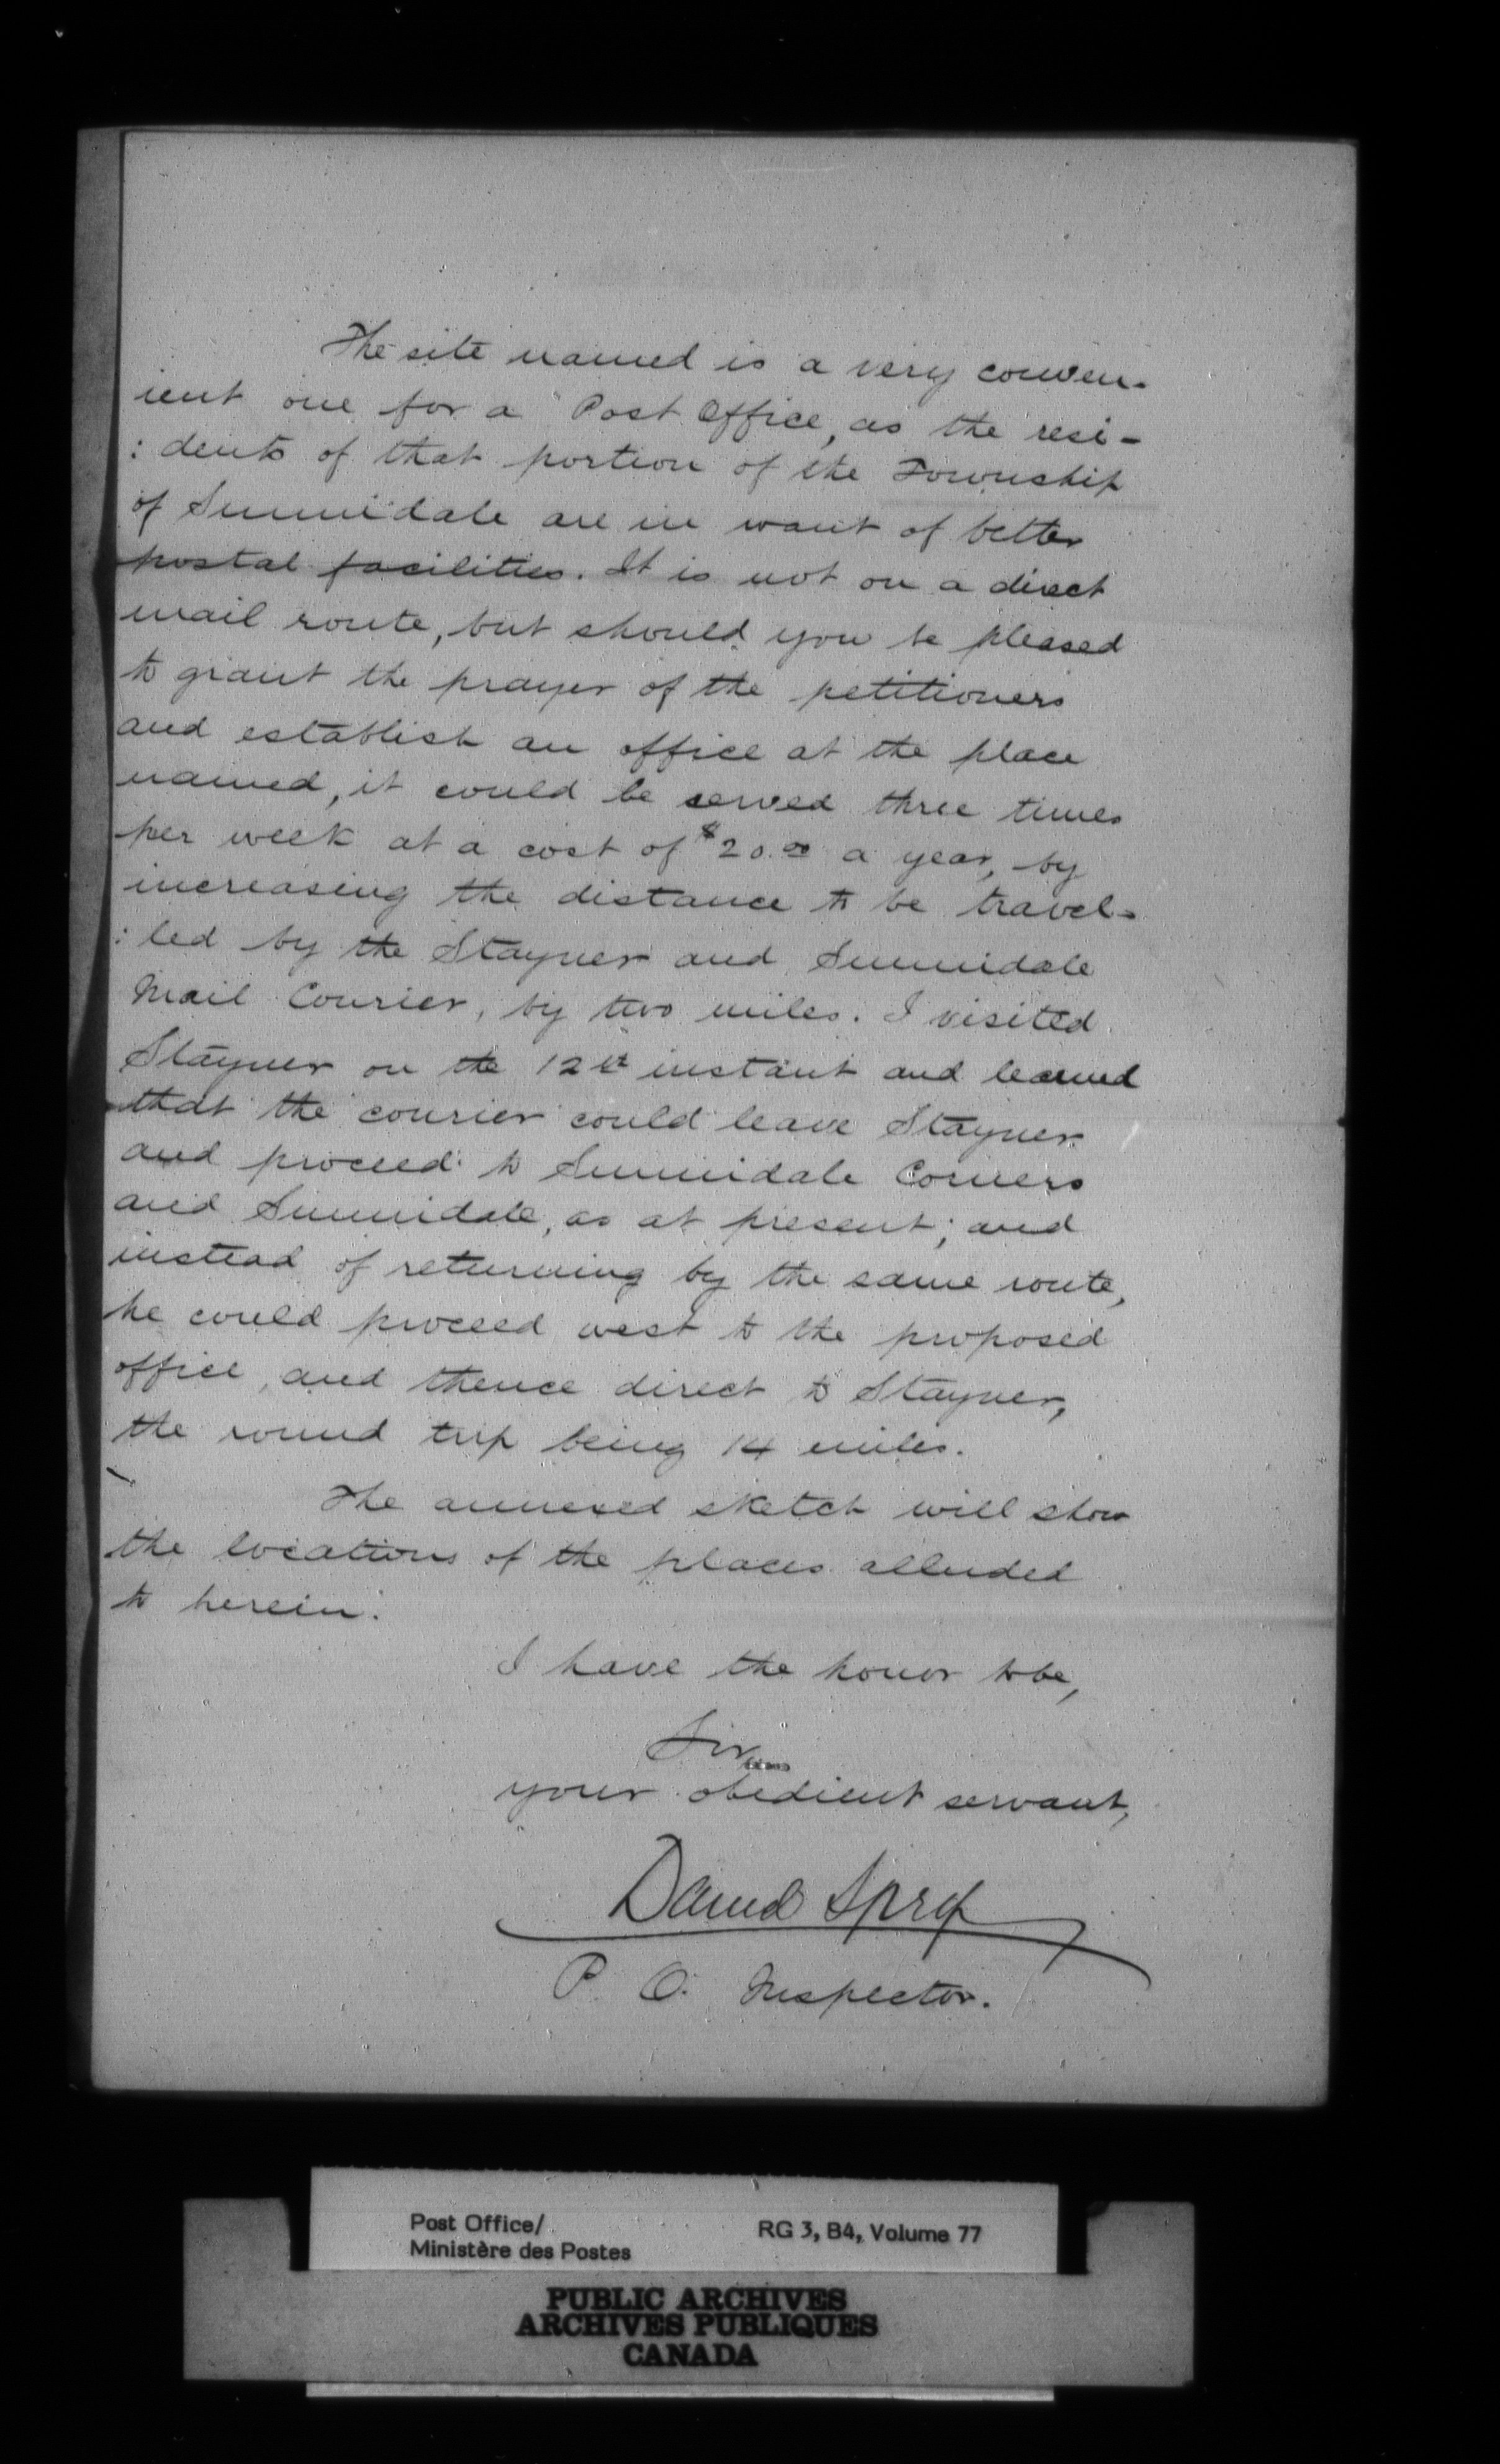 The site named is a very conven-
ient one for a Post Office, as the resi-
: dents of that portion of the Township
of Sunnidale are in want of better
postal facilities. It is not on a direct
mail route, but should you be pleased
to grant the prayer of the petitioners
and establish an office at the place
named, it could be served three times
per week at a cost of $20.00 a year, by
increasing the distance to be travel-
: led by the Stayner and Sunnidale
Mail Courier, by two miles. I visited
Stayner on the 12th instant and learned
that the courier could leave Stayner
and proceed to Sunnidale Corners
and Sunnidale, as at present; and
instead of returning by the same route,
he could proceed west to the proposed
office, and thence direct to Stayner,
the round trip being 14 miles.
The annexed sketch will show
the locations of the places alluded
to herein.
I have the honor to be,
Sir
your obedient servant,
Daniel Spry
P. O. Inspector.
Post Office/
Ministère des Postes
RG 3, B4, Volume 77
PUBLIC ARCHIVES
ARCHIVES PUBLIQUES
CANADA